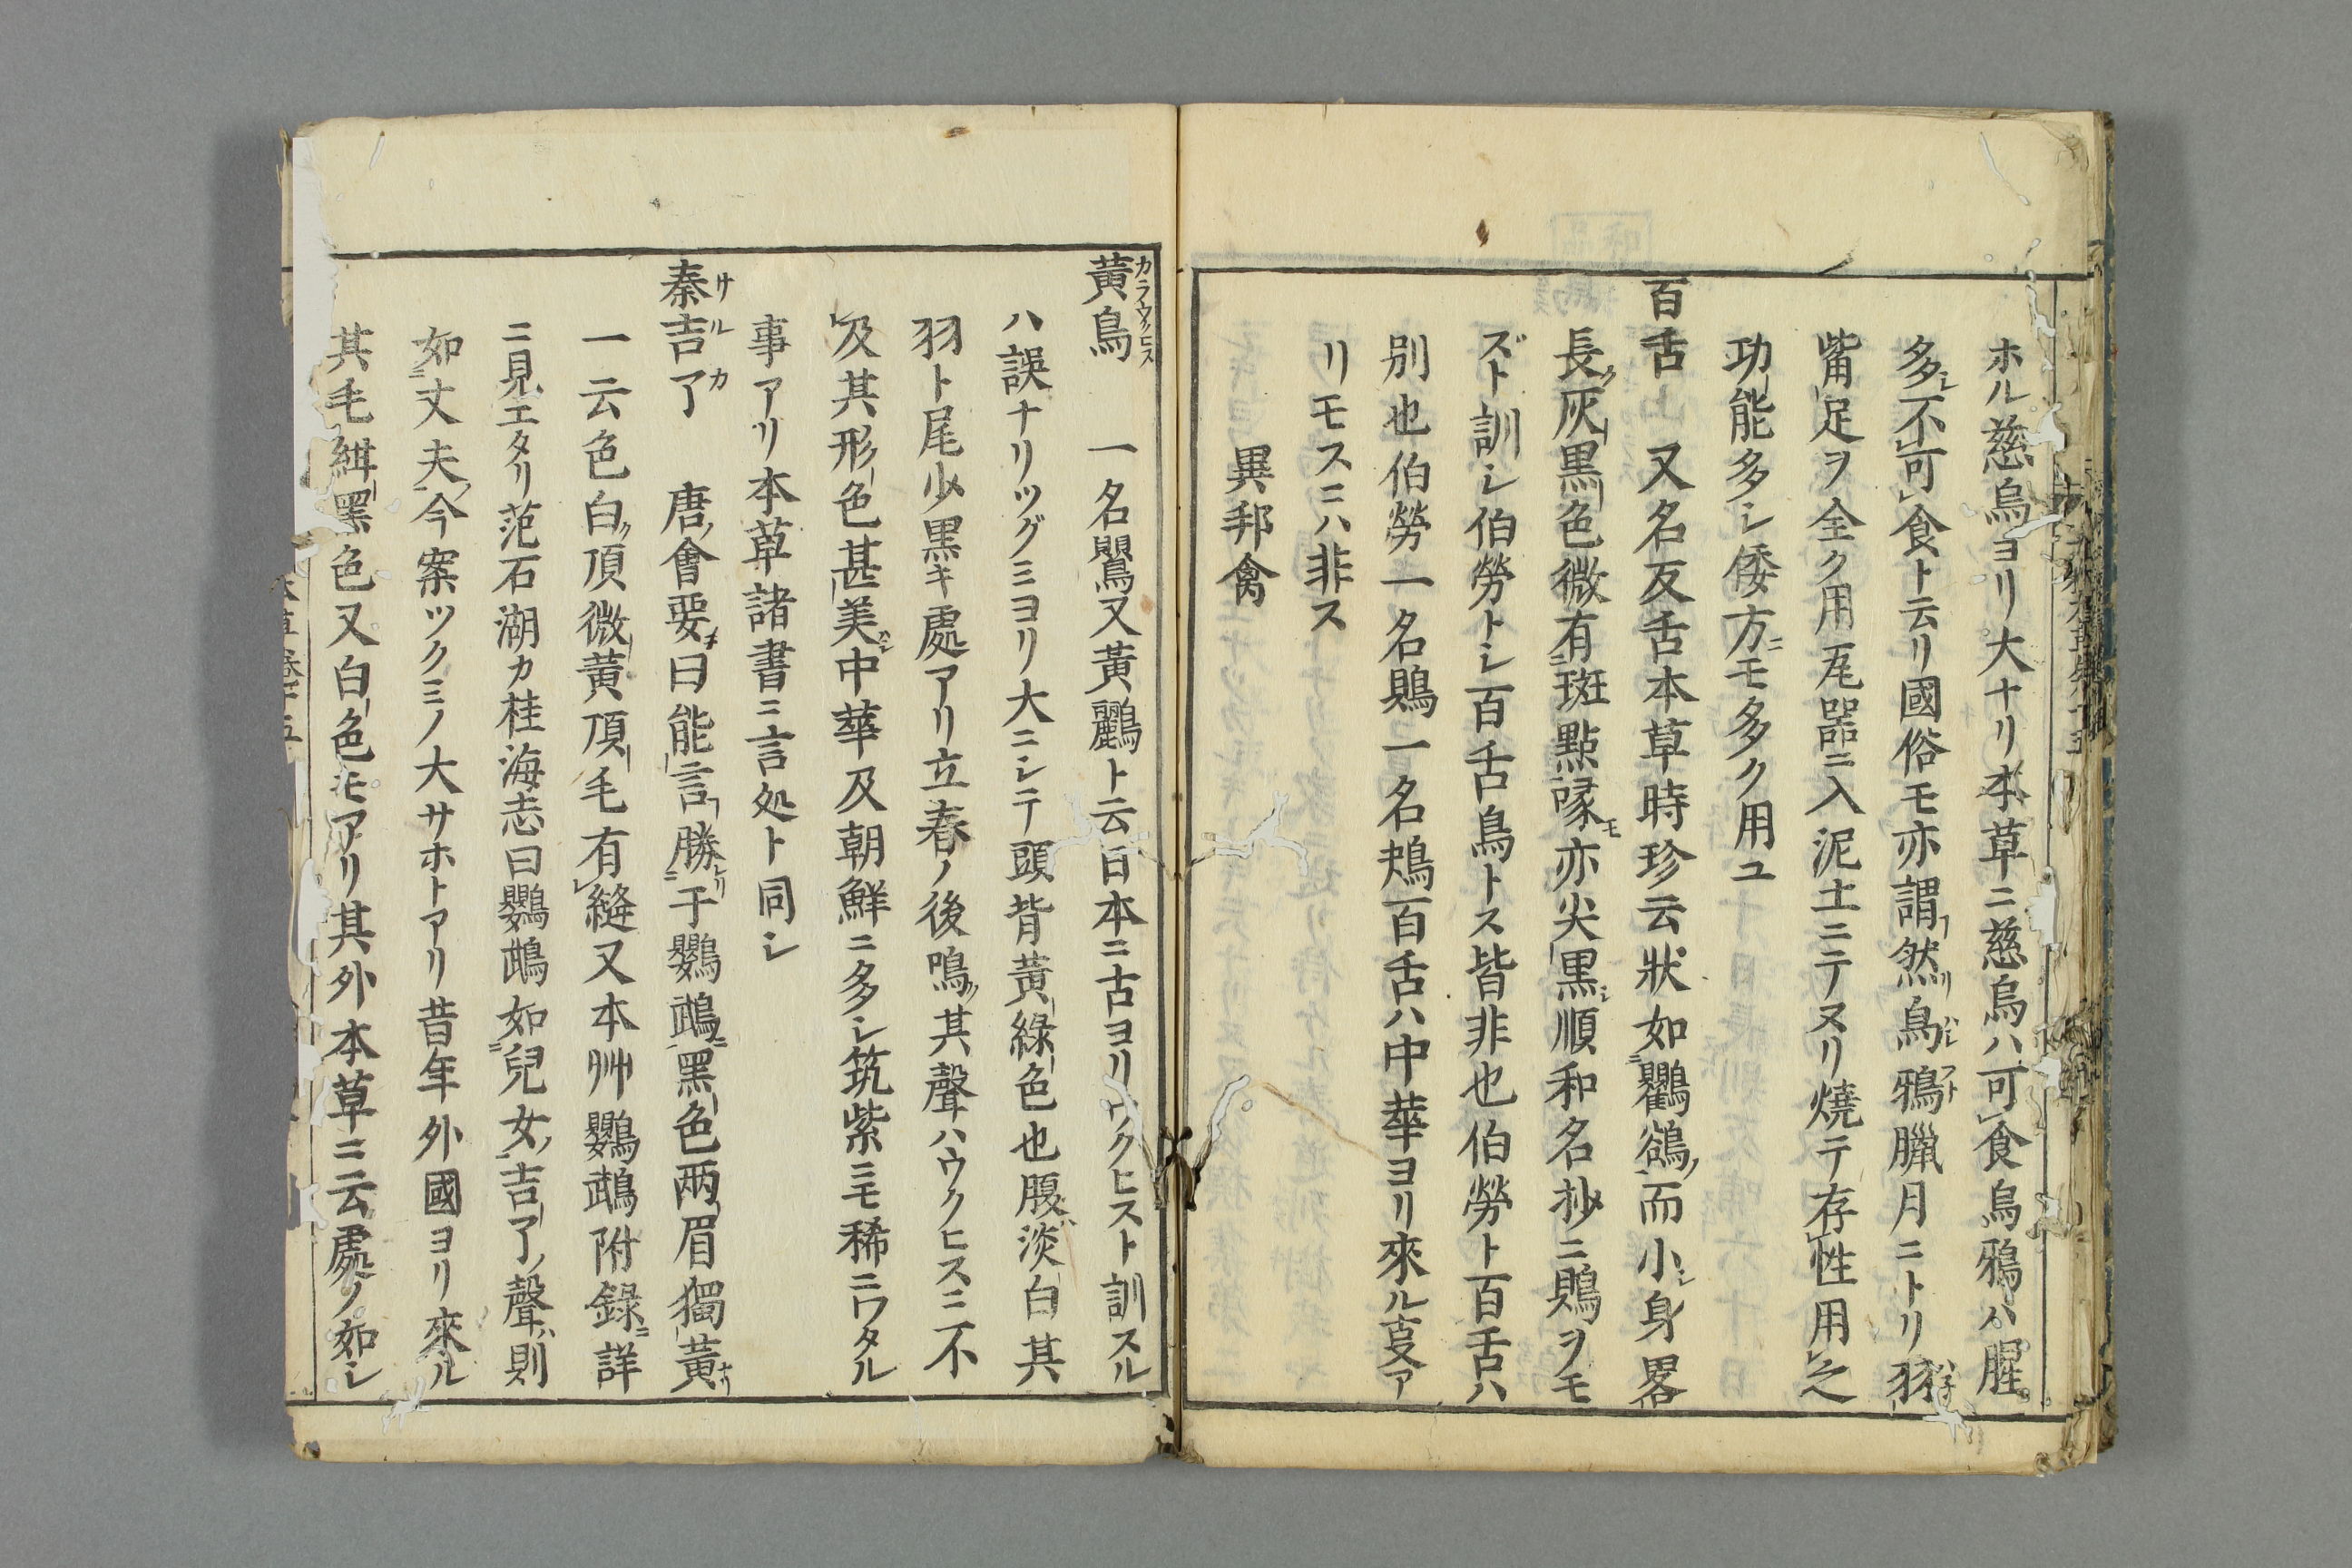 ホル慈烏ヨリ大ナリ本草ニ慈烏ハ可食烏鴉ハ腥
多シ不可食ト云リ國俗モ亦謂然烏鴉臘月ニトリ羽
觜足ヲ全ク用瓦器ニ入泥土ニテヌリ燒テ存性用之
功能多シ倭方ニモ多ク用ユ
百舌 又名反舌本草時珍云狀如鸜鵒而小身畧
長灰黒色微有斑點喙亦尖黒順和名抄ニ鵙ヲモ
ズト訓シ伯勞トシ百舌鳥トス皆非也伯勞ト百舌ハ
別也伯勞一名鵙一名鴂百舌ハ中華ヨリ來ル叓ア
リモスニハ非ス
異邦禽
黄鳥 一名鸎又黄鸝ト云日本ニ古ヨリウクヒスト訓スル
カラウクヒス
ハ誤ナリツグミヨリ大ニシテ頭背黄緑色也腹淡白其
羽ト尾少黒キ處アリ立春ノ後鳴其聲ハウクヒスニ不
及其形色甚美中華及朝鮮ニ多シ筑紫ニモ稀ニワタル
事アリ本草諸書ニ言処ト同シ
秦吉了 唐會要曰能言勝于鸚鵡黑色兩眉獨黄
サルカ
一云色白頂微黄頂毛有縫又本艸鸚鵡附録詳
ニ見エタリ范石湖カ桂海志曰鸚鵡如兒女吉了聲則
如丈夫今案ツクミノ大サホトアリ昔年外國ヨリ來ル
其毛緋黑色又白色モアリ其外本草ニ云處ノ如シ